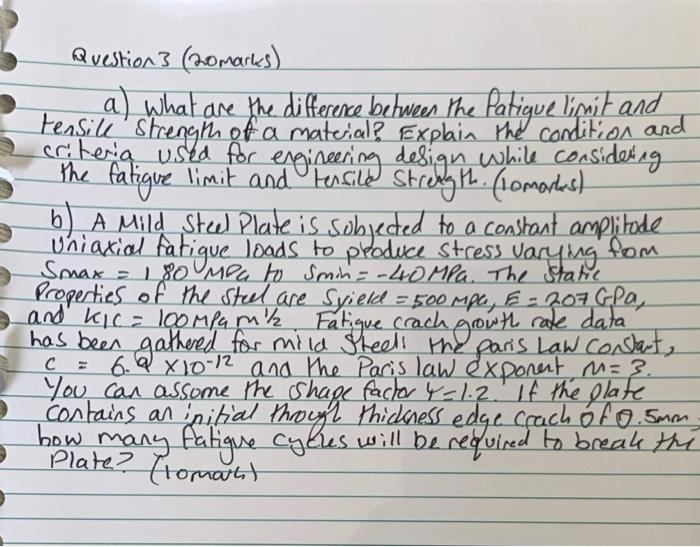 Question 3 (20marks)
a) What are the difference between the fatigue limit and
tensile strength of a material? Explain the condition and
criteria used for engineering design while considering
the fatigue limit and tensile strength. (10marks)
b) A Mild Steel Plate is subjected to a constant amplitude
uniaxial fatigue loads to produce stress varying from
Smax = 180 MPa to Smin = -40 MPa. The static
Properties of the steel are Syield = 500 MPa, E = 207 GPa,
and K1C = 100 MPa m 1/2. Fatigue crach growth rate data
has been gathered for mild steel: the paris Law Constant,
C = 6. × 10-12 and the Paris law exponent M = 3.
You can assume the shape factor Y = 1.2. If the plate
contains an initial through thickness edge crach of 0.5mm,
how many fatigue cycles will be required to break the
Plate? (10mark)